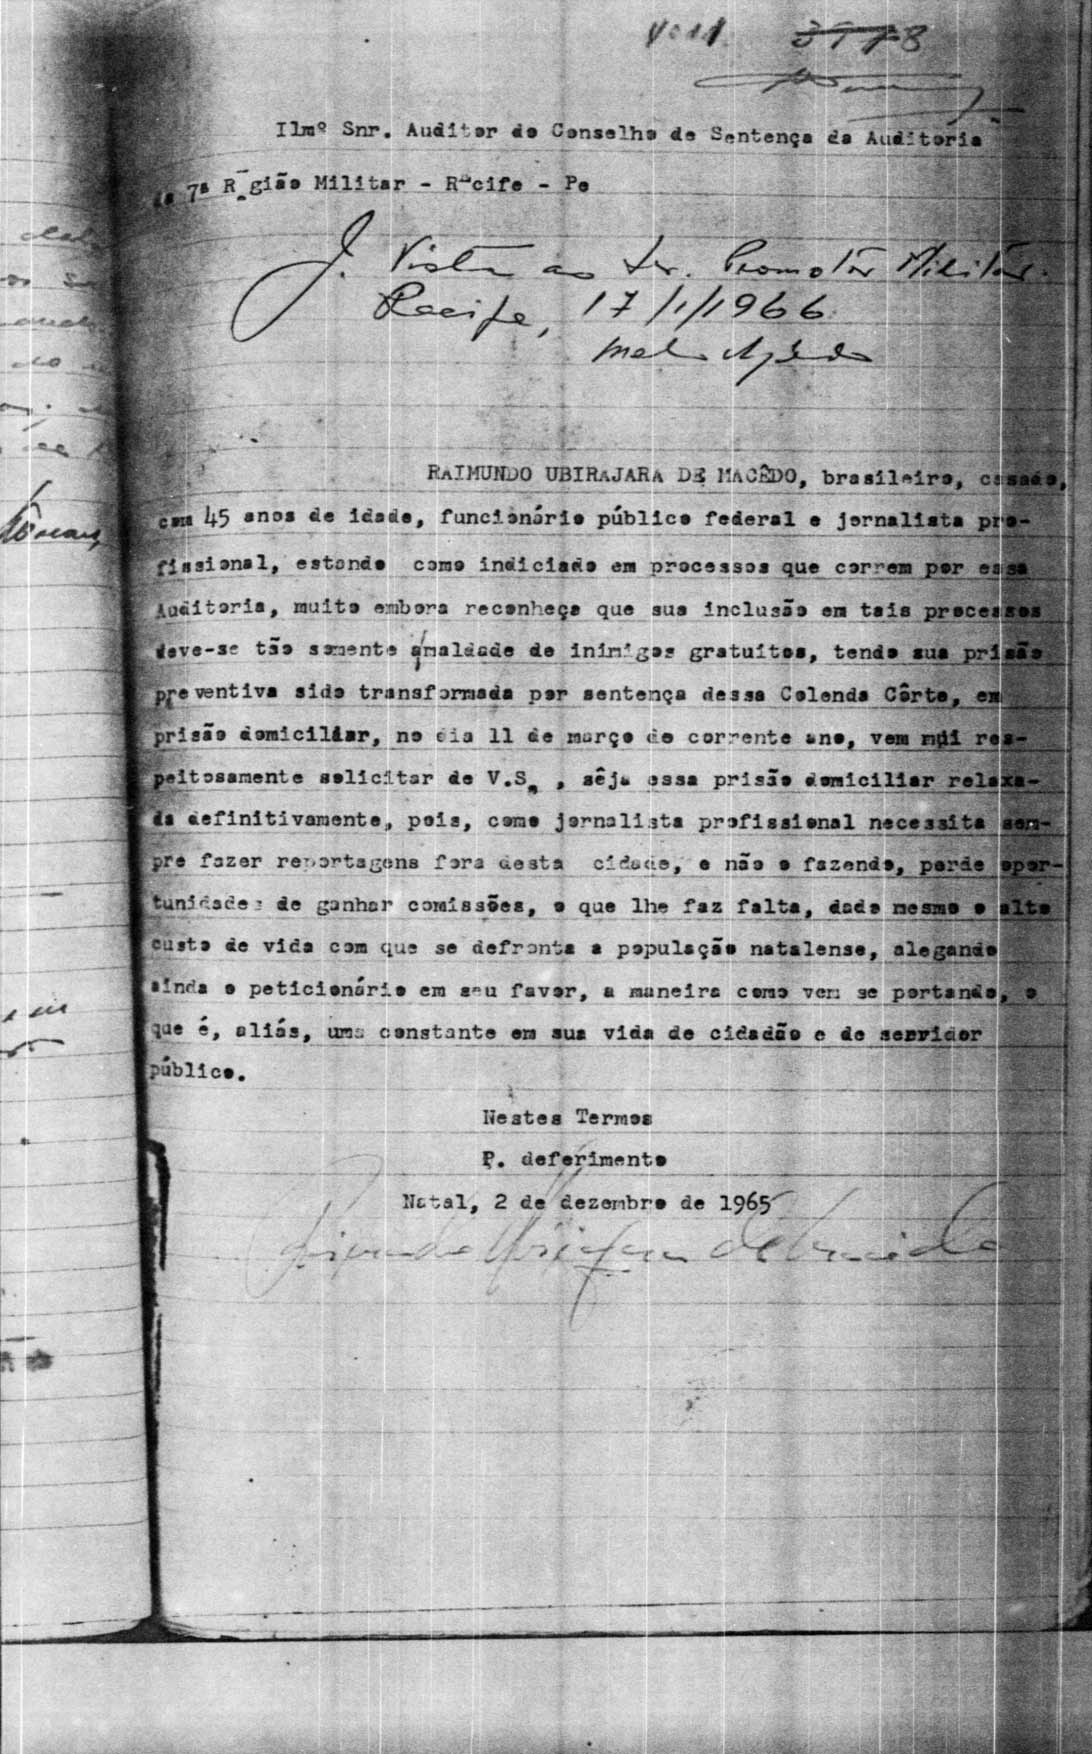 3978
Ilmº Snr. Auditor do Conselho de Sentença da Auditoria
da 7ª Região Militar - Recife - Pe
J. Vista ao Sr. Promotor Militar.
Recife, 17/1/1966
RAIMUNDO UBIRAJARA DE MACÊDO, brasileiro, casado,
com 45 anos de idade, funcionário público federal e jornalista pro-
fissional, estando como indiciado em processos que correm por essa
Auditoria, muito embora reconheça que sua inclusão em tais processos
deve-se tão somente a maldade de inimigos gratuitos, tendo sua prisão
preventiva sido transformada por sentença dessa Colenda Côrte, em
prisão domiciliar, no dia 11 de março do corrente ano, vem mui res-
peitosamente solicitar de V.Sª , sêja essa prisão domiciliar relaxa-
da definitivamente, pois, como jornalista profissional necessita sem-
pre fazer reportagens fora desta cidade, e não o fazendo, perde opor-
tunidades de ganhar comissões, o que lhe faz falta, dado mesmo o alto
custo de vida com que se defronta a população natalense, alegando
ainda o peticionário em seu favor, a maneira como vem se portando, o
que é, aliás, uma constante em sua vida de cidadão e de servidor
público.
Nestes Termos
P. deferimento
Natal, 2 de dezembro de 1965
Raimundo Ubirajara de Macedo